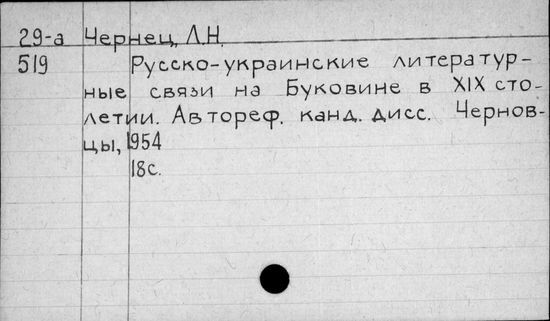 29-а Чернец, Л.Н.
519 Русско-украинские литератур-
ные связи на Буковине в XIX сто-
летии. Автореф. канд. дисс. Чернов-
цы, 1954
18с.